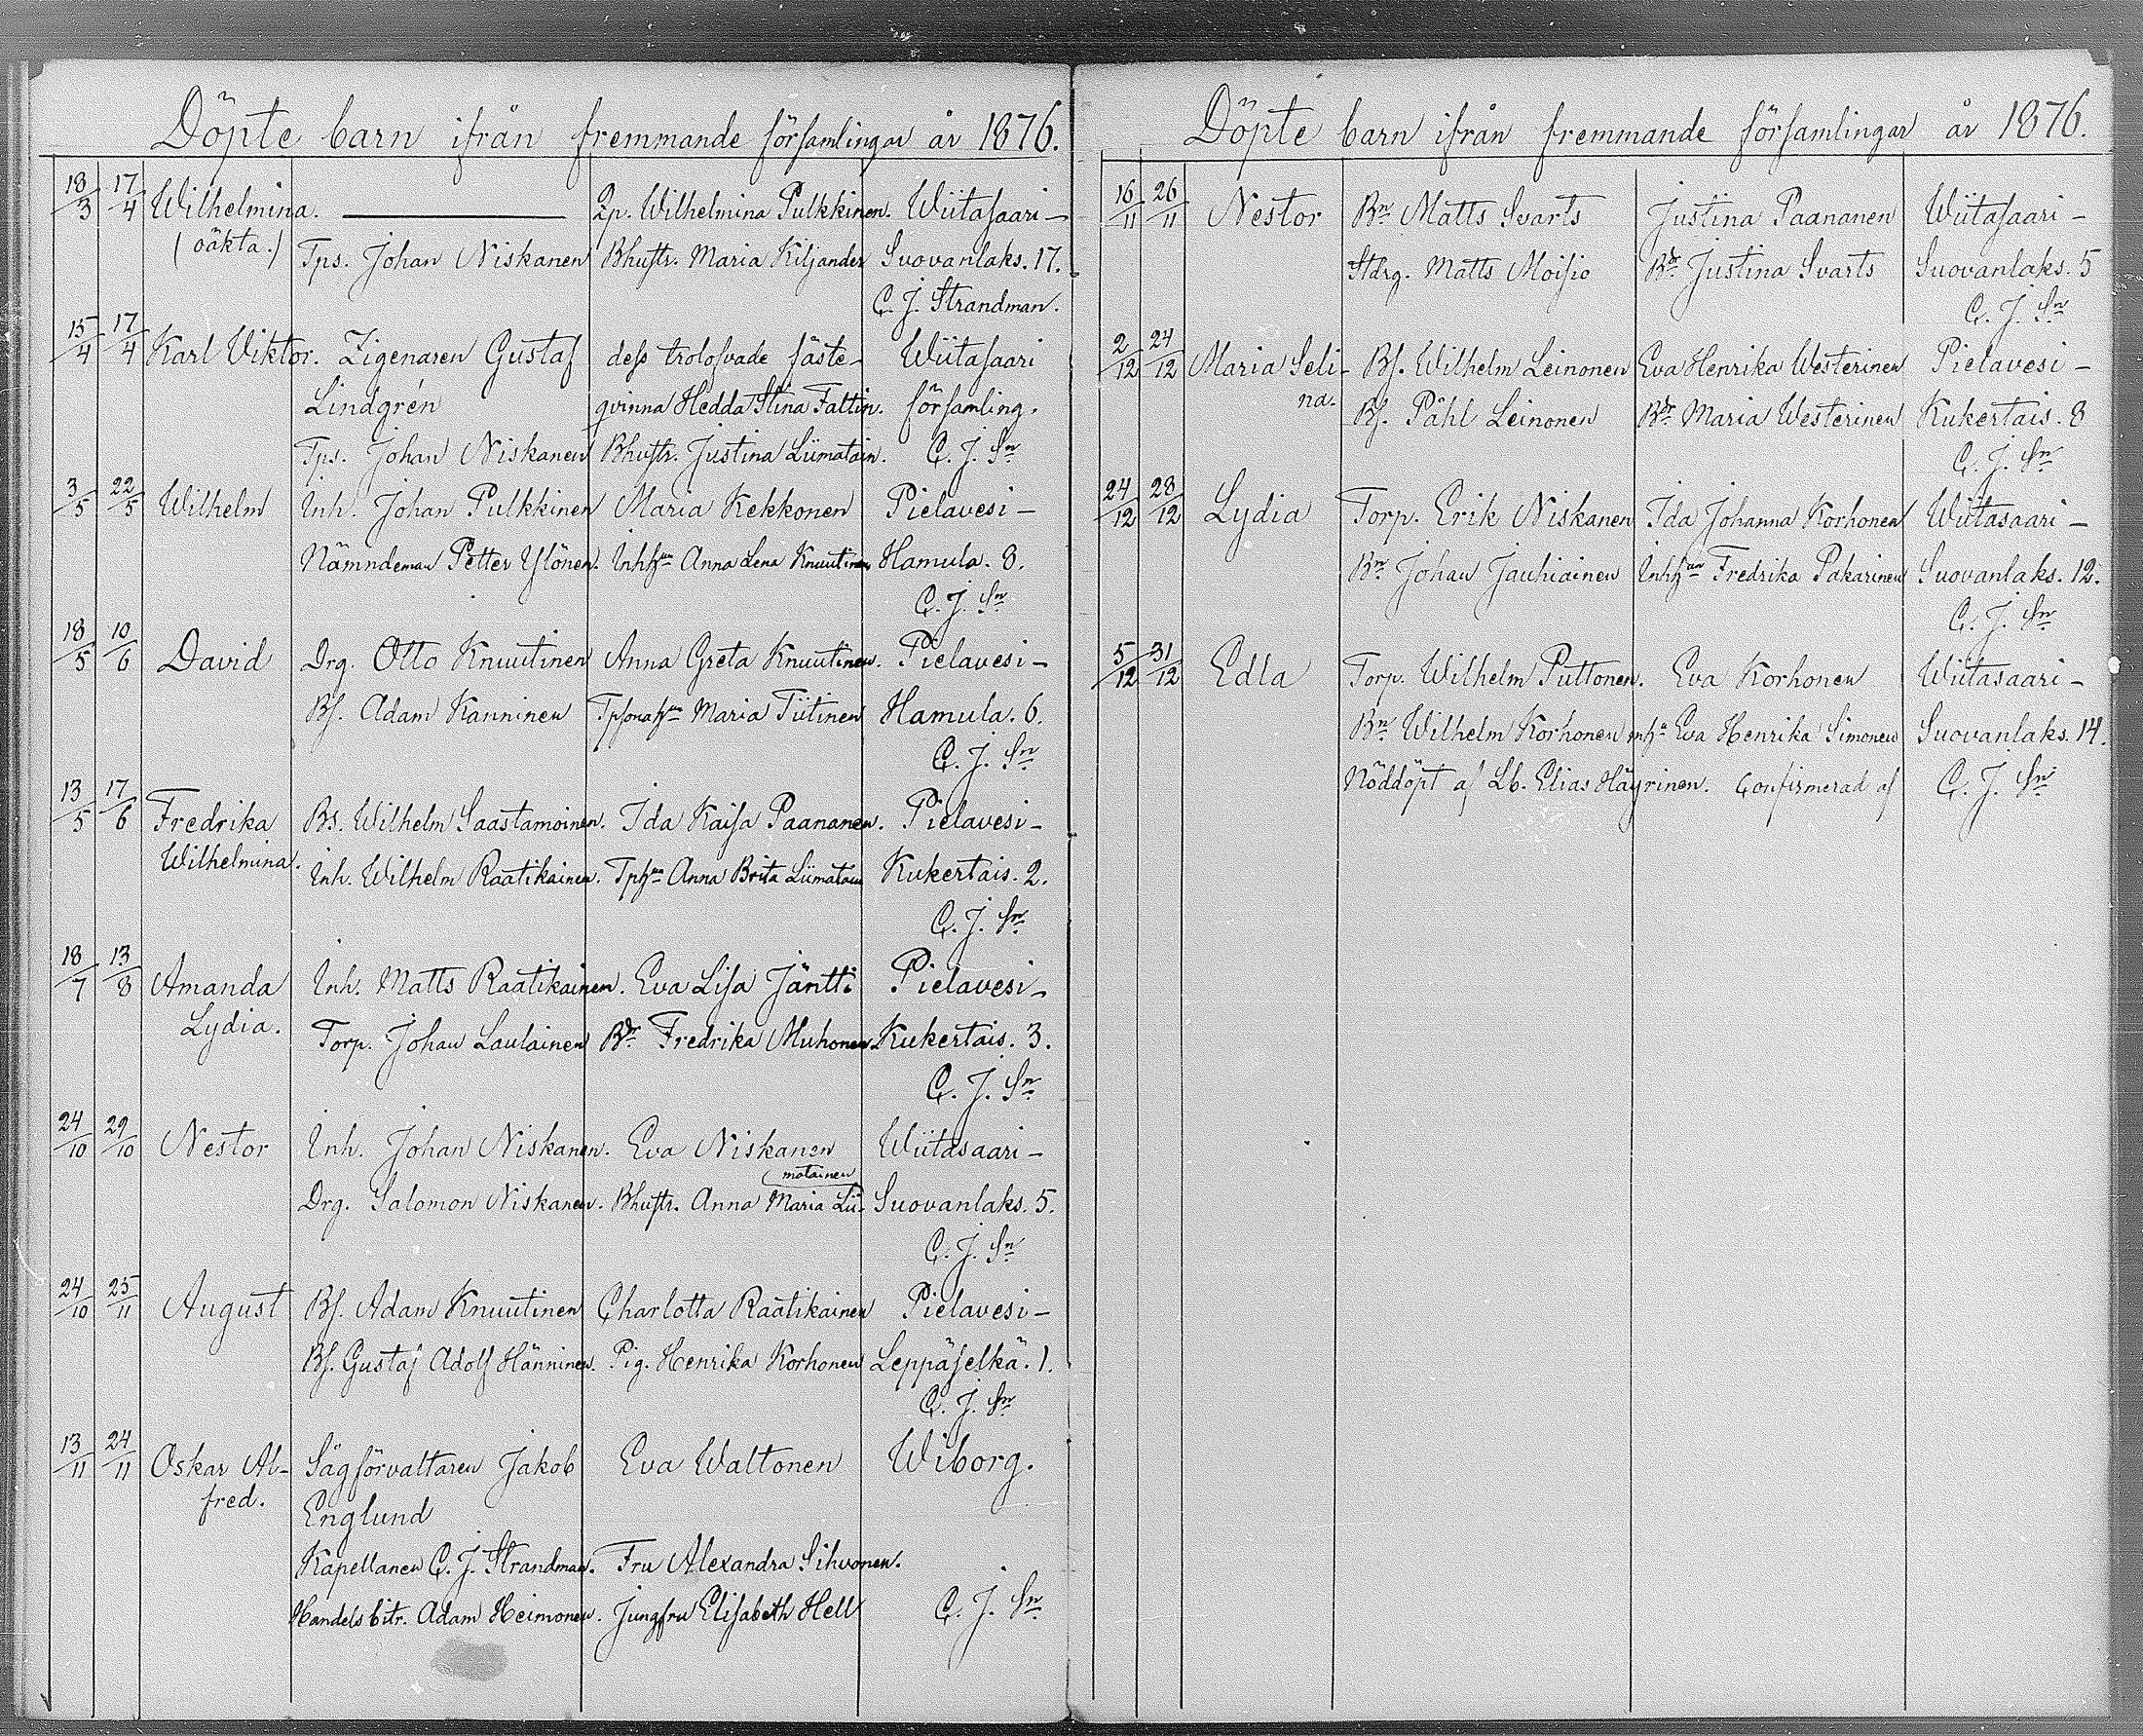 Döpte barn ifrån fremmande församlingar år 1876.
18/3 17/4 Wilhelmina. Qp. Wilhelmina Pulkkinen. Wiitasaari-
(oäkta.) Tps. Johan Niskanen Bhustr. Maria Kiljander Suovanlaks. 17.
C. J. Strandman.
15/4 17/4 Karl Viktor. Zigenaren Gustaf dess trolofvade fäste- Wiitasaari
Lindgrén qvinna Hedda Stina Faltin. församling.
Tps. Johan Niskanen Bhustr. Justina Liimatain. C. J. Sn
3/5 22/5 Wilhelm Inh. Johan Pulkkinen Maria Kekkonen Pielavesi-
Nämndeman Petter Ylönen. Inhhun Anna Lena Knuutinen Hamula. 8.
C. J. Sn
18/5 10/6 David Drg. Otto Knuutinen Anna Greta Knuutinen. Pielavesi-
Bs. Adam Kanninen Maria Tiitinen Hamula. 6.
C. J. Sn
13/5 17/6 Fredrika Bs. Wilhelm Saastamoinen. Ida Kaisa Paananen. Pielavesi-
Wilhelmina. Inh. Wilhelm Raatikainen. Anna Brita Liimatain Kukertais. 2.
C. J. Sn
18/7 13/8 Amanda Inh. Matts Raatikainen. Eva Lisa Jäntti Pielavesi-
Lydia. Torp. Johan Laulainen Bdr Fredrika Muhonen Kukertais. 3.
C. J. Sn
24/10 29/10 Nestor Inh. Johan Niskanen. Eva Niskanen Wiitasaari-
matainen
Drg. Salomon Niskanen. Bhustr. Anna Maria Lii- Suovanlaks. 5.
C. J. Sn
24/10 25/11 August Bs. Adam Knuutinen Charlotta Raatikainen Pielavesi-
Bs. Gustaf Adolf Hänninen. Pig. Henrika Korhonen Leppäselkä. 1.
C. J. Sn
13/11 24/11 Oskar Al- Sågförvaltaren Jakob Eva Waltonen Wiborg.
fred. Englund
Kapellanen C. J. Strandman. Fru Alexandra Sihvonen.
Handelsbitr. Adam Heimonen. Jungfru Elisabeth Hell C. J. Sn
Döpte barn ifrån fremmande församlingar år 1876.
16/11 26/11 Nestor Bn Matts Svarts Justina Paananen Wiitasaari-
Stdrg. Matts Moisio Bdr Justina Svarts Suovanlaks. 5
C. J. Sn
2/12 24/12 Maria Seli- Bs. Wilhelm Leinonen Eva Henrika Westerinen Pielavesi-
na. Bs. Påhl Leinonen Bdr Maria Westerinen Kukertais. 8
C. J. Sn
24/12 28/12 Lydia Torp. Erik Niskanen Ida Johanna Korhonen Wiitasaari-
Bn Johan Jauhiainen Inhhun Fredrika Pakarinen Suovanlaks. 12.
C. J. Sn
5/12 31/12 Edla Torp. Wilhelm Puttonen. Eva Korhonen Wiitasaari-
Bn Wilhelm Korhonen Inha Eva Henrika Simonen Suovanlaks. 14.
Nöddöpt af Lb. Elias Häyrinen. Confirmerad af C. J. Sn